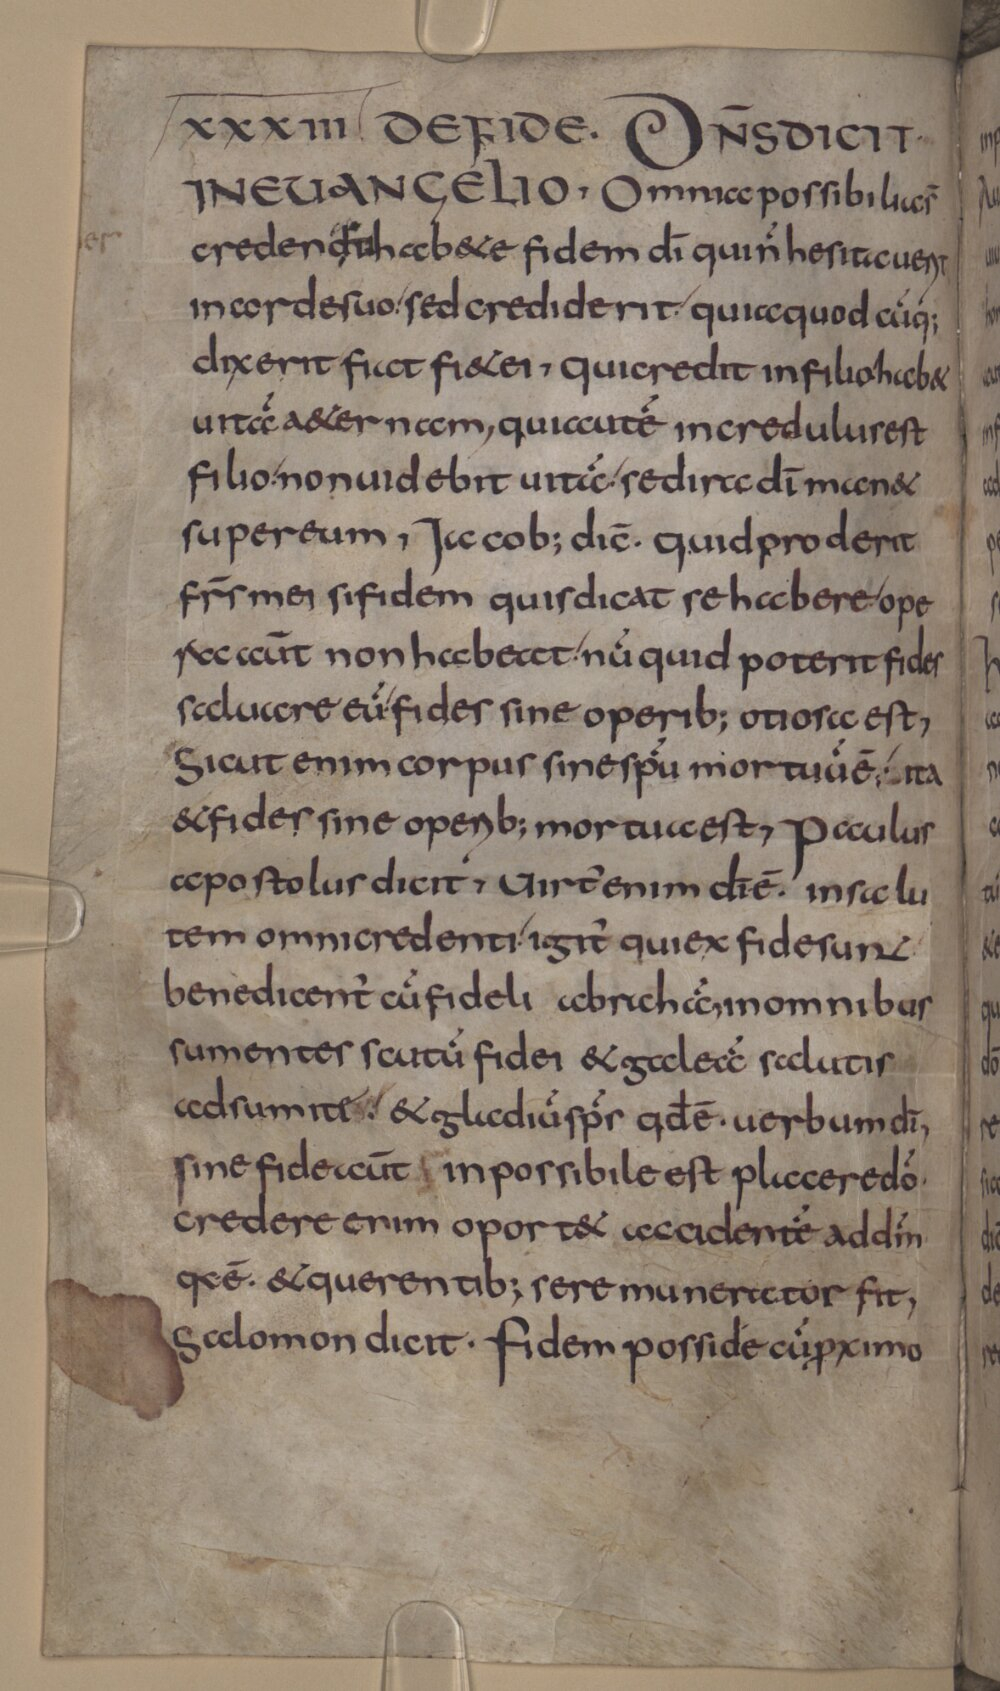 XXXIII DE FIDE. DN̄S DICIT
IN EUANGELIO, Omnia possibilia s̄
credendi habete fidem dī qui n̄ hesitauerit
in corde suo sed crediderit quia quodcūq;
dixerit fiat fiet ei, qui credit in filio hab&
uitā a&ernam, qui autē incredulus est
filio non uidebit uitā sed ira dī man&
super eum, Iacob; dic̄. quid proderit
fr̄s mei si fidem quis dicat se habere ope
ra aūt non habeat nūquid poterit fides
saluare eū fides sine operib; otiosa est,
Sicut enim corpus sine sp̄u mortuū ē, ita
& fides sine operib; mortua est, Paulus
apostolus dicit, Uirt̄ enim dī ē. in salu
tem omni credenti igit̄ qui ex fide sunt
benedicent̄ cū fideli abrahā, in omnibus
sumentes scutū fidei & galeā salutis
adsumite. & gladiū sp̄s qd̄ ē. uerbum dī,
sine fide aūt inpossibile est placere dō.
credere enim oport& accidentē ad dm̄
qa ē. & querentib; se remunerator fit,
Salomon dicit. Fidem posside cū proximo